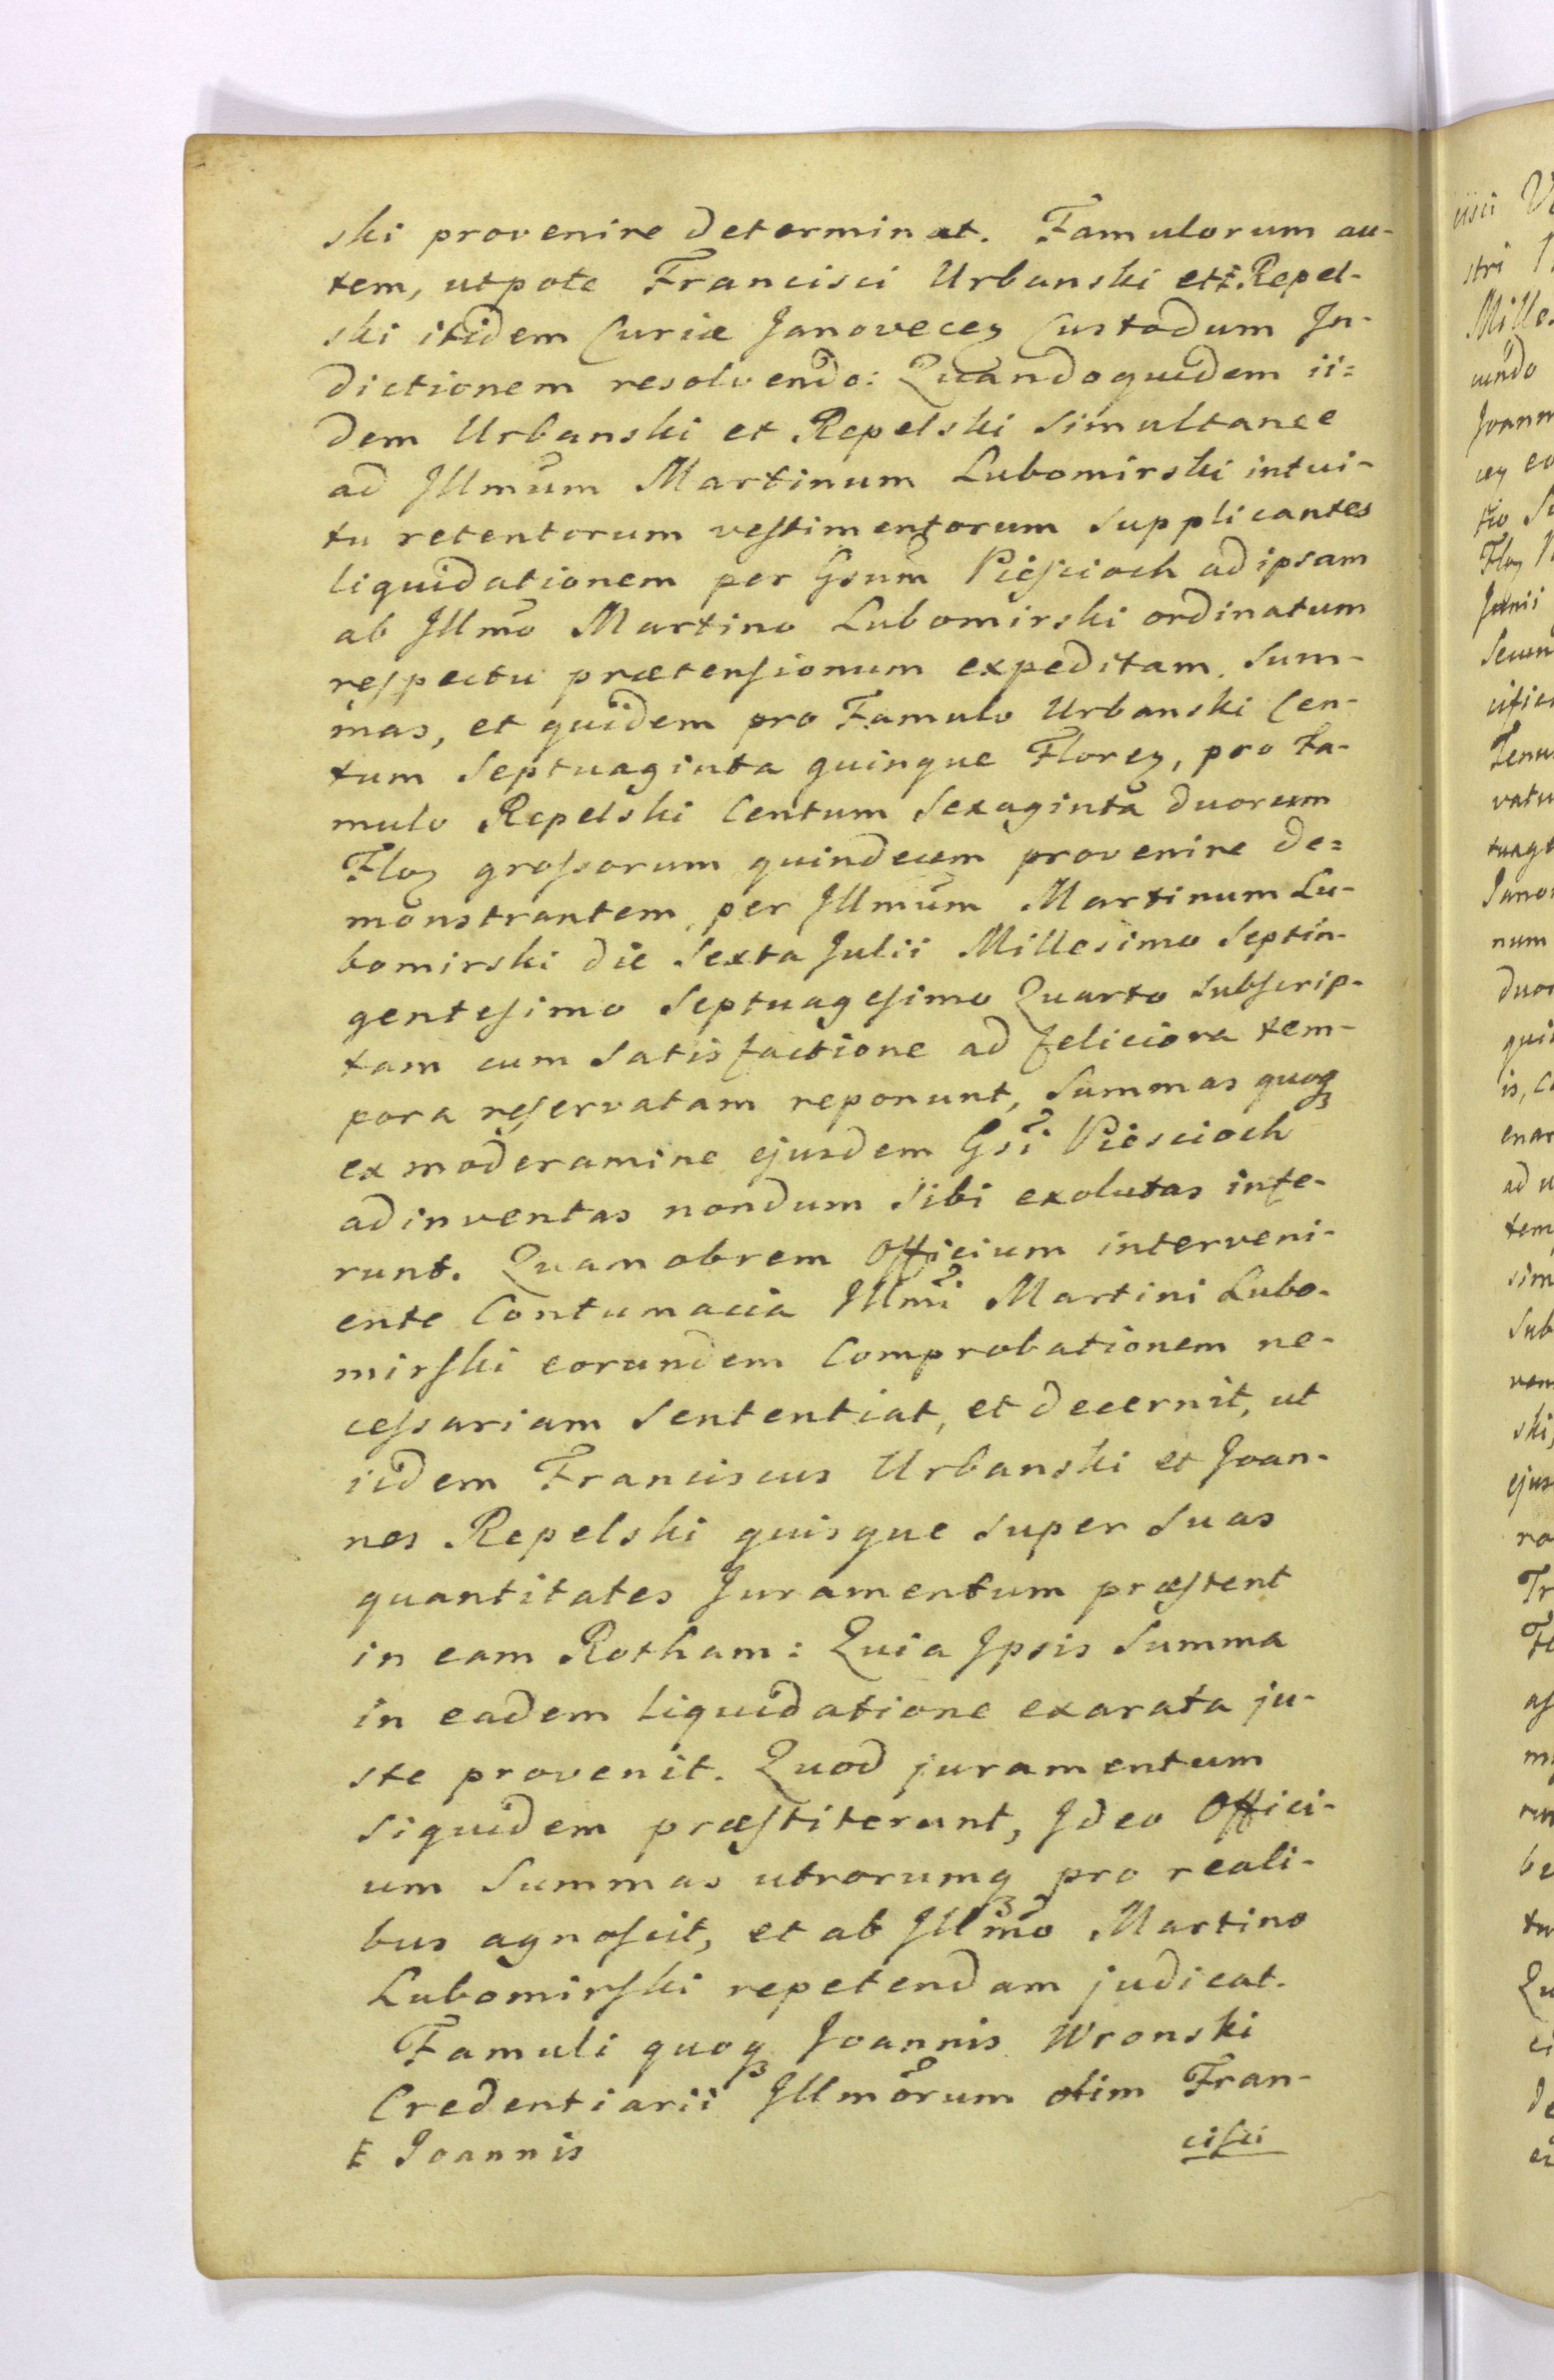 ski provenire determinat. Famulorum au-
tem, utpote Francisci Urbanski et ŧ Repel-
ski itidem Curiæ Janovecen Custodum In-
dictionem resolvendo: Quandoquidem ii=
dem Urbanski et Repelski simultanee
ad Illmum Martinum Lubomirski intui-
tu retentorum vestimentorum supplicantes
liquidationem per Gsum Pieścioch ad ipsam
ab Illmo Martino Lubomirski ordinatum
respectu prætensionum expeditam, sum-
mas, et quidem pro Famulo Urbanski Cen-
tum Septuaginta quinque Floren, pro Fa-
mulo Repelski Centum Sexaginta duorum
Flon grossorum quindecem provenire de=
monstrantem, per Illmum Martinum Lu-
bomirski die Sexta Julii Millesimo Septin-
gentesimo Septuagesimo Quarto subscrip-
tam cum satisfactione ad feliciora tem-
pora reservatam reponunt, Summas quoq
ex moderamine ejusdem Gsi Pieścioch
adinventas nondum sibi exolutas infe-
runt. Quamobrem Officium interveni-
ente Contumacia Illmi Martini Lubo-
mirski eorundem Comprobationem ne-
cessariam sententiat, et decernit, ut
iidem Franciscus Urbanski et Joan-
nes Repelski quisque super suas
quantitates Juramentum præstent
in eam Rotham: Quia Ipsis Summa
in eadem liquidatione exarata ju-
ste provenit. Quod juramentum
siquidem præstiterunt, Ideo Offici-
um Summas utrorumq pro reali-
bus agnoscit, et ab Illmo Martino
Lubomirski repetendam judicat.
Famuli quoq Joannis Wronski
Credentiarii Illmorum olim Fran-
ŧ Joannis
cisci